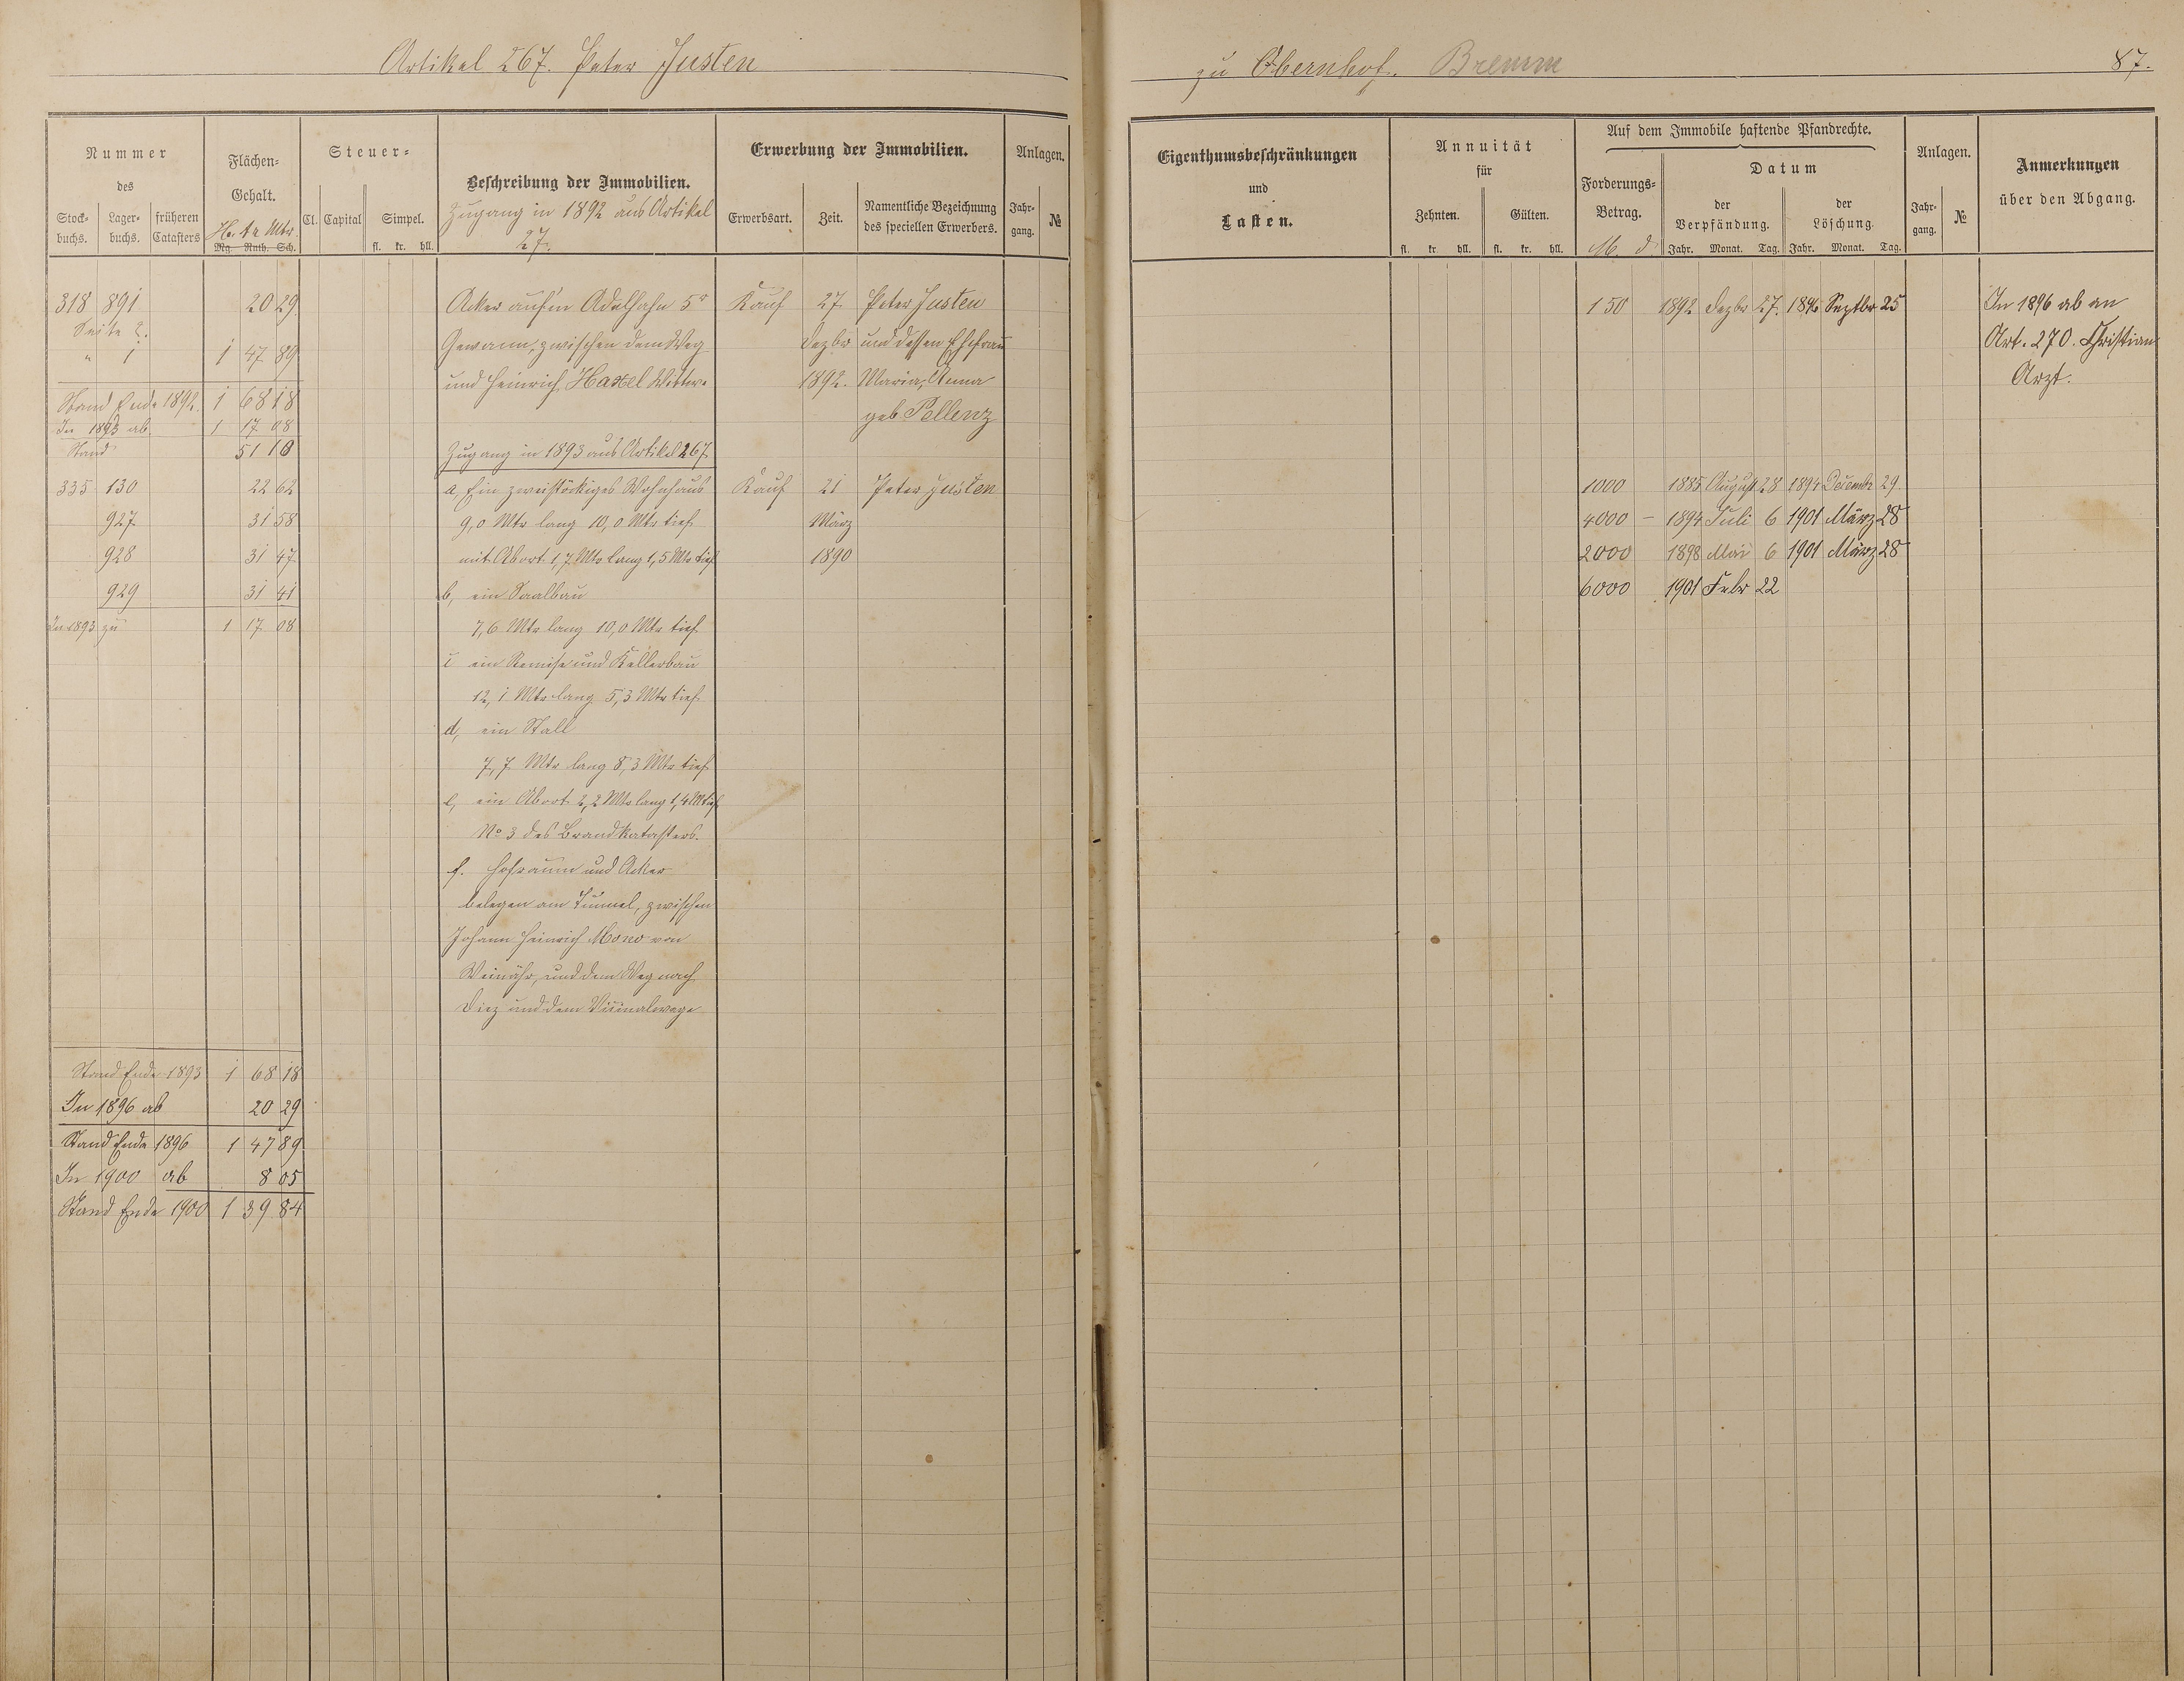 Artikel 267. Peter Justen
zu Obernhof. Bremm
87.
Nummer
des
Stock-
buchs.
Lager-
buchs.
früheren
Catasters
Flächen-
Gehalt.
H. Ar Mtr.
Mg. Ruth. Sch.
Steuer-
Cl. Capital Simpel.
fl. kr. hll.
Beschreibung der Immobilien.
Zugang in 1892 aus Artikel
27.
Erwerbung der Immobilien.
Erwerbsart. Zeit.
Namentliche Bezeichnung
des speciellen Erwerbers.
Anlagen.
Jahr-
gang.
№
Eigenthumsbeschränkungen
und
Lasten.
Annuität
für
Zehnten. Gülten.
fl. kr. hll. fl. kr. hll.
Auf dem Immobile haftende Pfandrechte.
Forderungs-
Betrag.
M. d
Datum
der
Verpfändung.
Jahr. Monat. Tag.
der
Löschung.
Jahr. Monat. Tag.
Anlagen.
Jahr-
gang.
№
Anmerkungen
über den Abgang.
318 891 20 29
Seite 2.
" 1 1 47 89
Stand Ende 1892. 1 68 18
In 1893 ab 1 17 08
Stand 51 10
335 130 22 62
927 31 58
928 31 47
929 31 41
In 1893 zu 1 17 08
Stand Ende 1893 1 68 18
In 1896 ab 20 29
Stand Ende 1896 1 47 89
In 1900 ab 8 05
Stand Ende 1900 1 39 84
Acker auf'm Adelhahn 5r
Gewann, zwischen dem Weg
und Heinrich Hastel Wittwe
Zugang in 1893 aus Artikel 267.
a, Ein zweistöckiges Wohnhaus
9,0 Mtr lang 10,0 Mtr tief
mit Abort 1,7 Mtr lang 1,5 Mtr tief
b, ein Saalbau
7,6 Mtr lang 10,0 Mtr tief.
c ein Remise und Kellerbau
12,1 Mtr lang 5,3 Mtr tief.
d, ein Stall
7,7 Mtr lang 8,3 Mtr tief
e, ein Abort 2,2 Mtr lang 1,4 M tief
No 3 des Brandkatasters.
f. Hofraum und Acker
belegen am Tunnel, zwischen
Johann Heinrich Mono von
Weinähr, und dem Weg nach
Diez und dem Vicinalwege
Kauf 27. Peter Justen
Dezbr und dessen Ehefrau
1892. Maria, Anna
geb Pellenz
Kauf 21 Peter Justen
März
1890
150 1892 Dezbr 27. 1896 Septbr 25
1000 1885 August 28 1894 Decembr 29.
4000 – 1894 Juli 6 1901 März 28
2000 1898 Mai 6 1901 März 28
6000 1901 Febr 22
In 1896 ab an
Art. 270. Christian
Arzt.